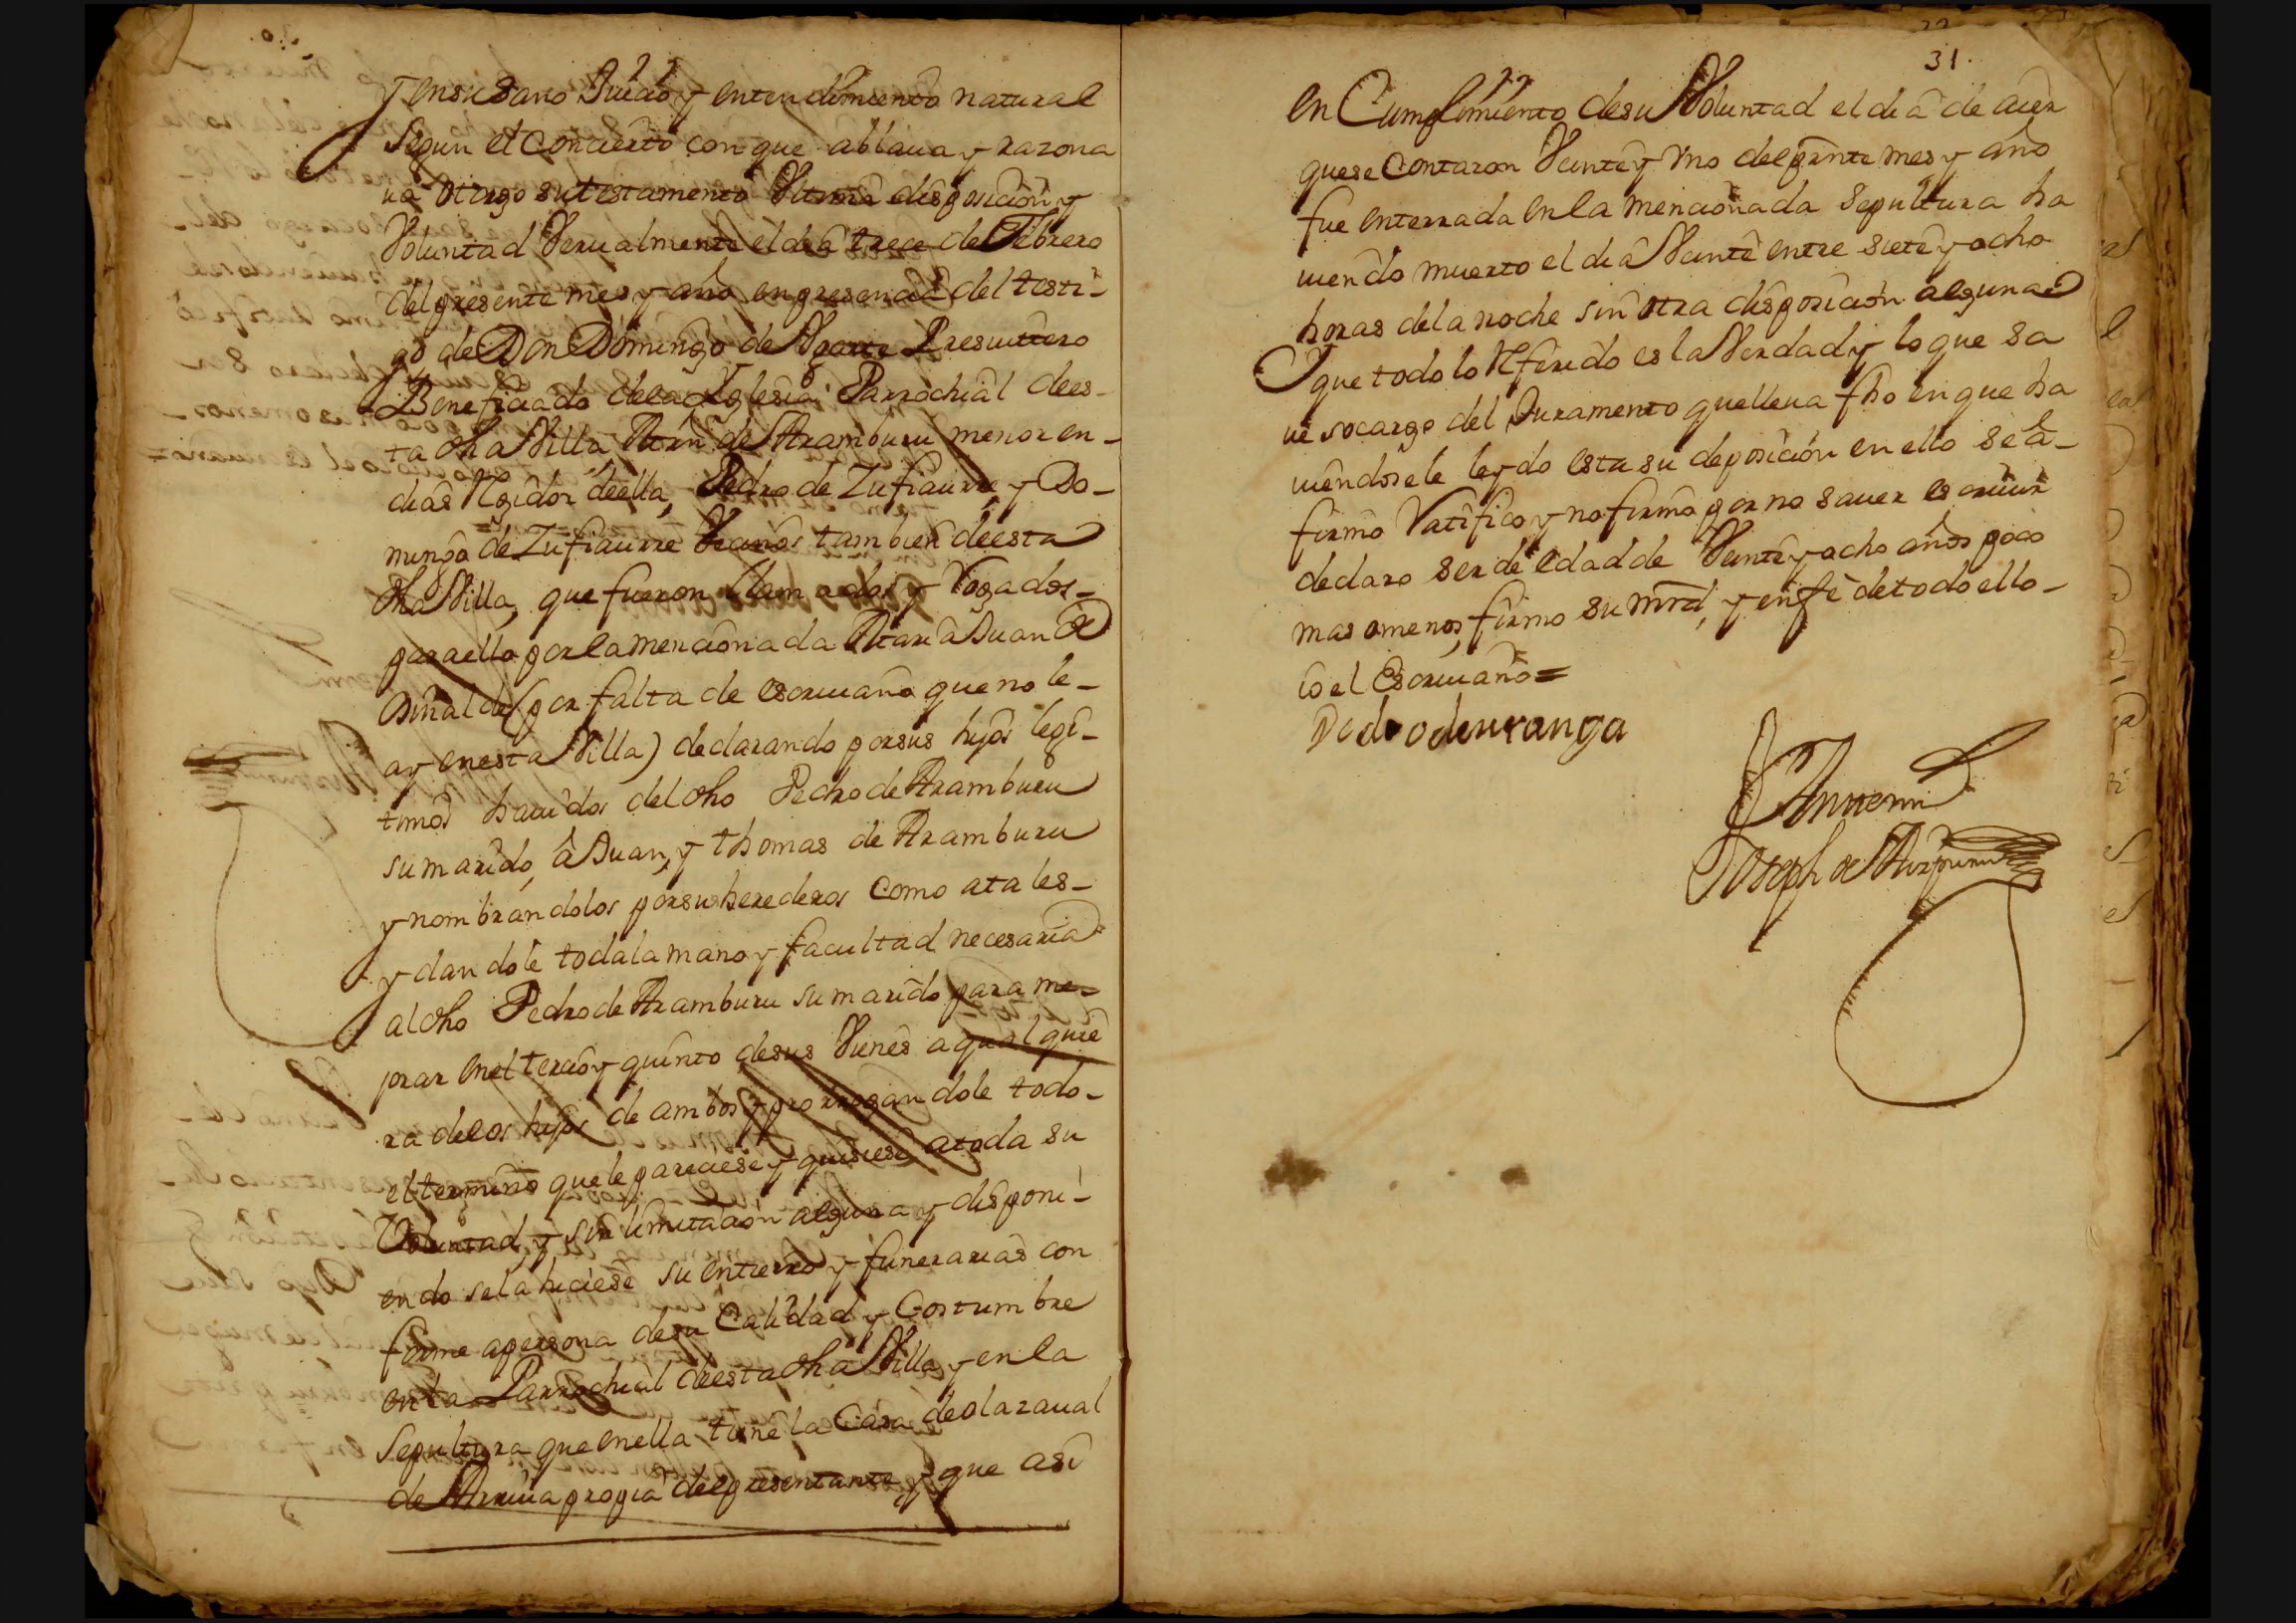 y en su sano Juicio y entendimiento natural
segun el concierto con que ablaua y razona
ua otorgo su testamento Vltima disposicion y
Voluntad Verualmente el dia trece de Febrero
del presente mes y año en presencia del testi-
go de Don Domingo de Vgarte Presuitero
Beneficiado de la Iglesia Parrochial dees-
ta dha Villa Martin de Aramburu menor en
dias Rexidor deella, Pedro de Zufiaurre, y Do-
mingo de Zufiaurre Vecinos tambien deesta
dha Villa, que fueron llamados y Rogados-
para ello por la mencionada Maria Juan de
(por falta de escriuano que no le-
ay en esta Villa) declarando por sus hijos legi-
timos hauidos del dho Pedro de Aramburu
su marido, â Juan, y thomas de Aramburu
y nombrandolos por sus herederos como atales-
y dandole toda la mano y facultad necesaria
al dho Pedro de Aramburu su marido para me-
jorar en el tercio y quinto de sus Vienes a qualquie
ra de los hijos de ambos y prorrogandole todo-
el termino que le pareciese y quisiese atoda su
Voluntad, y sin limitacion alguna y disponi-
endo se la hiciese su entierro y funerarias con
forme a persona de su Calidad y Costumbre
en la Parrochial deesta dha Villa, y en la
Sepultura que en ella tiene la Casa de olazaual
de Arriua propia del presentante, y que asi
31.
en Cumplimiento de su Voluntad el dia de aier
que se Contaron Veinte y Vno del presente mes y año
fue enterrada en la mencionada Sepultura ha
uiendo muerto el dia Veinte entre siete y ocho
horas de la noche sin otra disposicion alguna
que todo lo Referido es la Verdad y lo que sa
ue socargo del Juramento que lleua fho en que ha
uiendosele leydo esta su deposicion en ello se a-
firmo Ratifico y no firmo por no sauer escriuir
declaro ser de edad de Veinte y ocho años poco
mas omenos, firmo su mrd, y en fe de todo ello-
io el Escriuano=
Pedro de uranga
Antemi
Joseph de